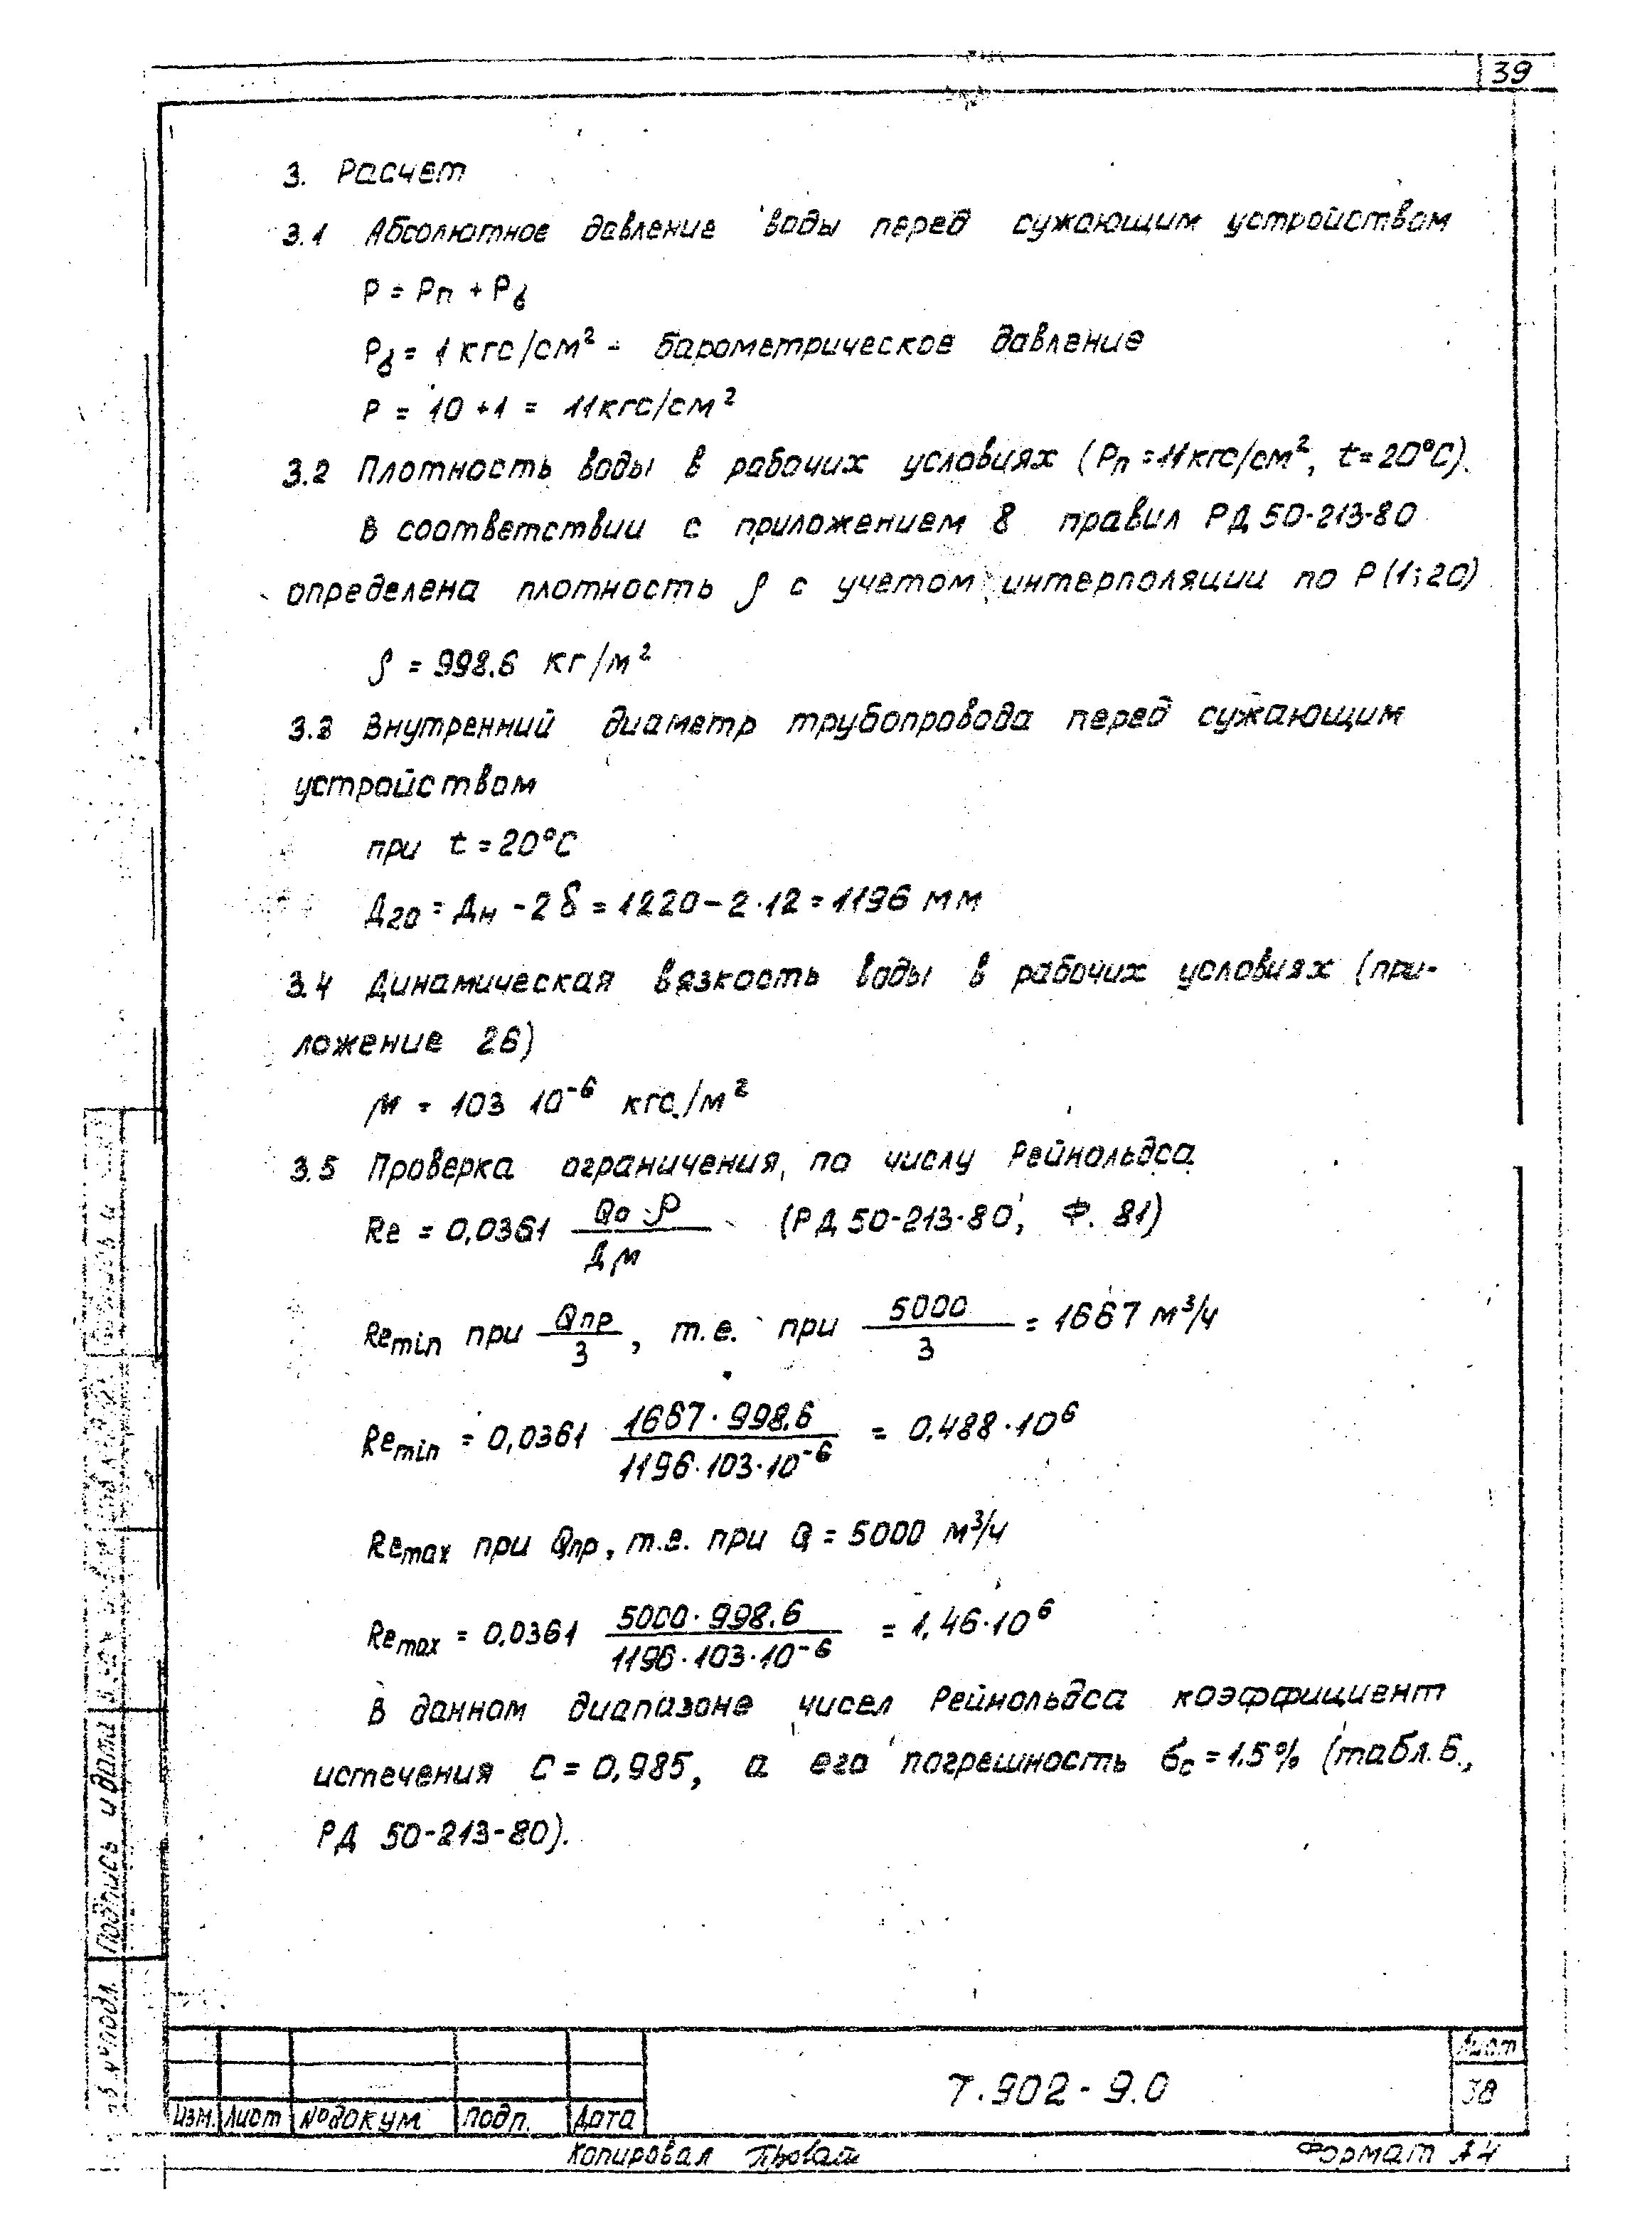 39
3. Расчет
3.1 Абсолютное давление воды перед сужающим устройством
Р = Рп + Рб
Рб = 1 кгс/см² - барометрическое давление
Р = 10 + 1 = 11 кгс/см²
3.2 Плотность воды в рабочих условиях (Рп = 11 кгс/см², t = 20°С).
В соответствии с приложением 8 правил РД 50-213-80
определена плотность ρ с учетом интерполяции по Р (1; 20)
ρ = 998.6 кг/м²
3.3 Внутренний диаметр трубопровода перед сужающим
устройством
при t = 20°С
Д20 = Дн - 2δ = 1220 - 2·12 = 1196 мм
3.4 Динамическая вязкость воды в рабочих условиях (при-
ложение 26)
μ = 103 10⁻⁶ кгс/м²
3.5 Проверка ограничения по числу Рейнольдса
Re = 0,0361 Qо·ρ / Дμ (РД 50-213-80, Ф. 81)
Remin при Qпр / 3, т.е. при 5000 / 3 = 1667 м³/ч
Remin = 0,0361 1667·998.6 / 1196·103·10⁻⁶ = 0,488·10⁶
Remax при Qпр, т.е. при Q = 5000 м³/ч
Remax = 0,0361 5000·998.6 / 1196·103·10⁻⁶ = 1,46·10⁶
В данном диапазоне чисел Рейнольдса коэффициент
истечения С = 0,985, а его погрешность бс = 1.5% (табл. 6.,
РД 50-213-80).
Подпись и дата
№ подл.
Изм. Лист № докум подп. Дата
7.902-9.0
Лист
38
Копировал
Формат А4